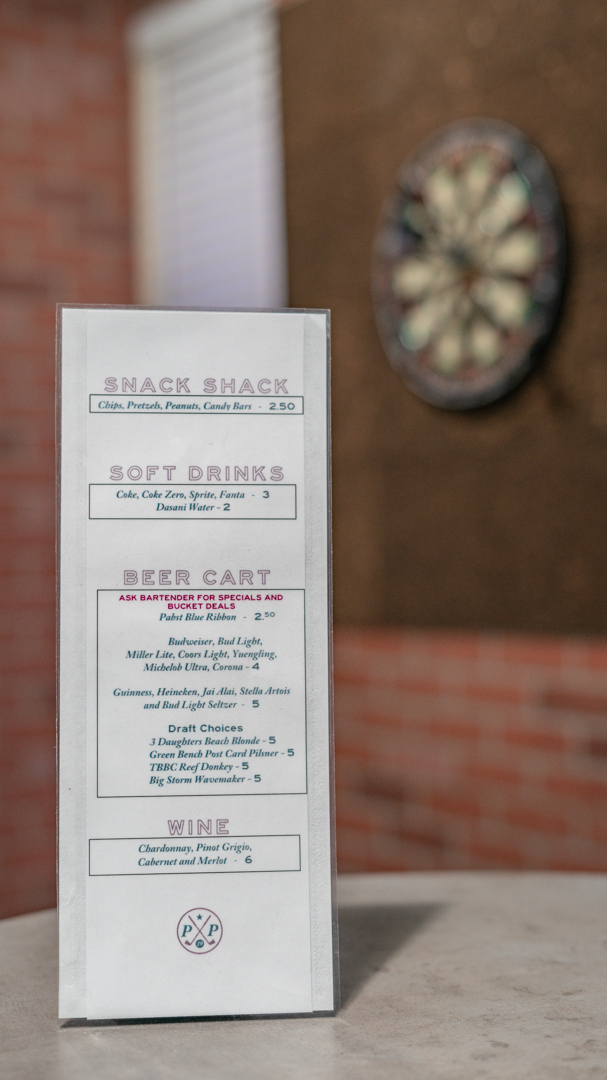 SNACK SHACK
Chips, Pretzels, Peanuts, Candy Bars - 2.50
SOFT DRINKS
Coke, Coke Zero, Sprite, Fanta - 3
Dasani Water - 2
BEER CART
ASK BARTENDER FOR SPECIALS AND
BUCKET DEALS
Pabst Blue Ribbon - 2.50
Budweiser, Bud Light,
Miller Lite, Coors Light, Yuengling,
Michelob Ultra, Corona - 4
Guinness, Heineken, Jai Alai, Stella Artois
and Bud Light Seltzer - 5
Draft Choices
3 Daughters Beach Blonde - 5
Green Bench Post Card Pilsner - 5
TBBC Reef Donkey - 5
Big Storm Wavemaker - 5
WINE
Chardonnay, Pinot Grigio,
Cabernet and Merlot - 6
P P